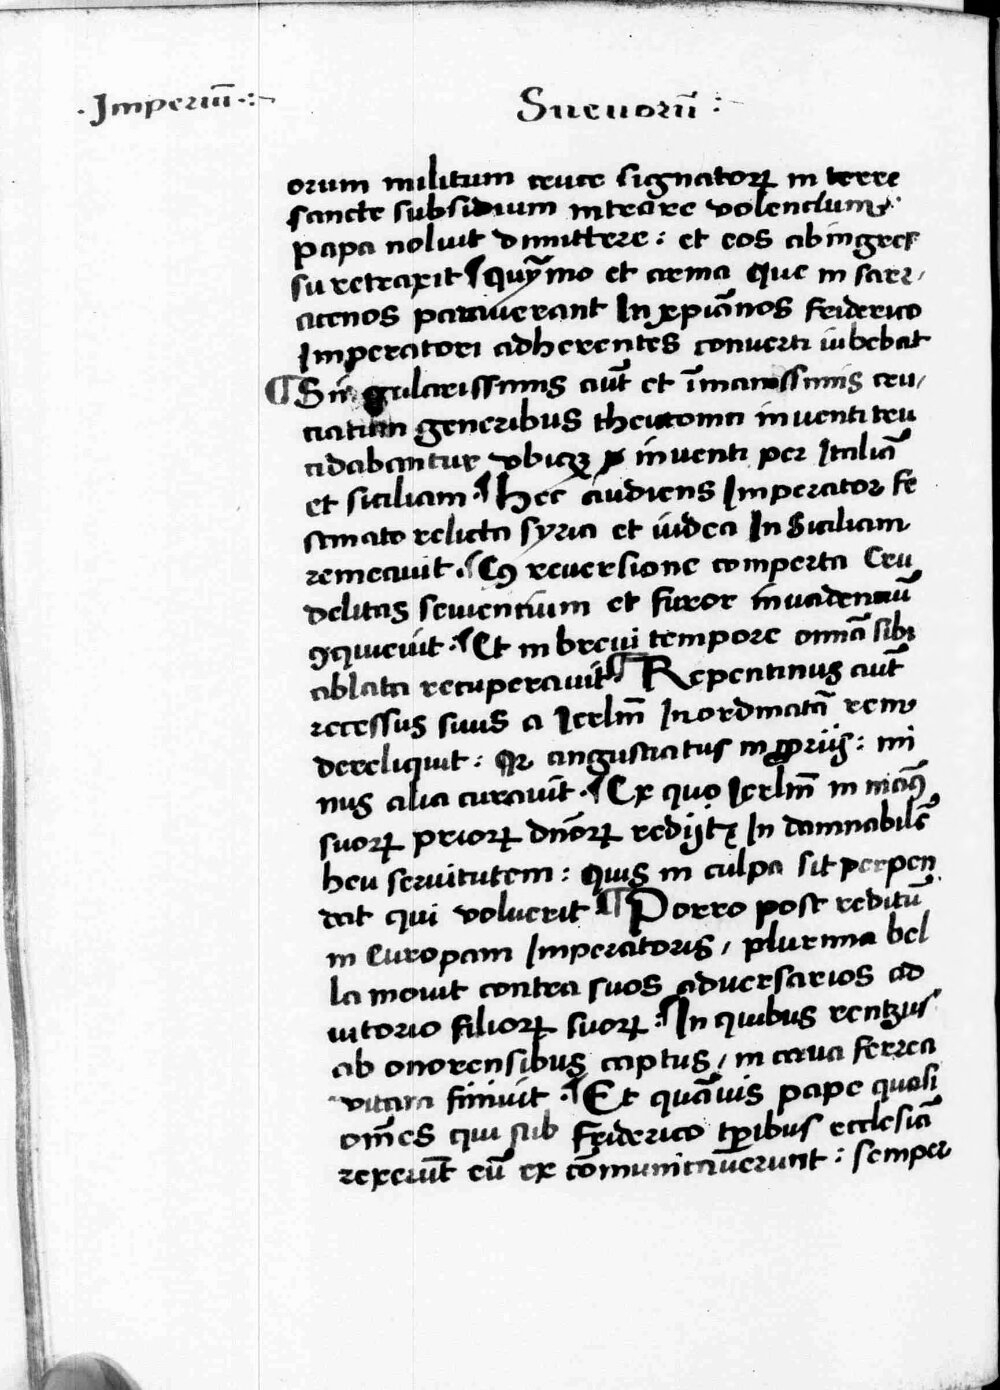 ·Imperiū·:~ Sueuorū :~
orum militum cruce signatorꝝ in terre
sancte subsidium intrare volendum:
papa noluit dimittere : et eos ab ingres
su retraxit ¶ quỹmo et arma que in sarr,
acenos parauerant In xp̄iānos friderico
Imperatori adherentes conuerti iubebat
¶ Singularissimis aūt et īmanissimis cru,
ciatum generibus theutonici inuenti tru
cidabantur vbicꝫ inuenti per Italiā
et siciliam · ¶ hec audiens Imperator fe
stinato relicta syria et iudea In Siciliam
remeauit · ¶ Cꝰ reuersione comperta Cru
delitas seuientium et furor inuadentiū
ꝯquieuit · ¶ Et in breui tempore omnia sibi
ablata recuperauit ¶ Repentinus aūt
recessus suus a Ierlm̄ Inordinatā rem
dereliquit : Qꝛ angustiatus in ꝓpriis : mi
nus alia curauit · ¶ Ex quo Ierlm̄ in manꝰ
suorꝝ priorꝝ dn̄orꝝ redijt In damnabilē
heu seruitutem : quis in culpa sit perpen
dat qui voluerit ¶ Porro post reditū
in Europam Imperatoris, plurima bel
la mouit contra suos aduersarios ad
iutorio filiorꝝ suorꝝ : ¶ In quibus rentzus
ab onorensibus captus, in caua ferrea
vitam finiuit · ¶ Et quāuis pape quasi
om̄es qui sub friderico tꝑibus ecclesiā
rexerūt eū excōmunicauerunt : semper